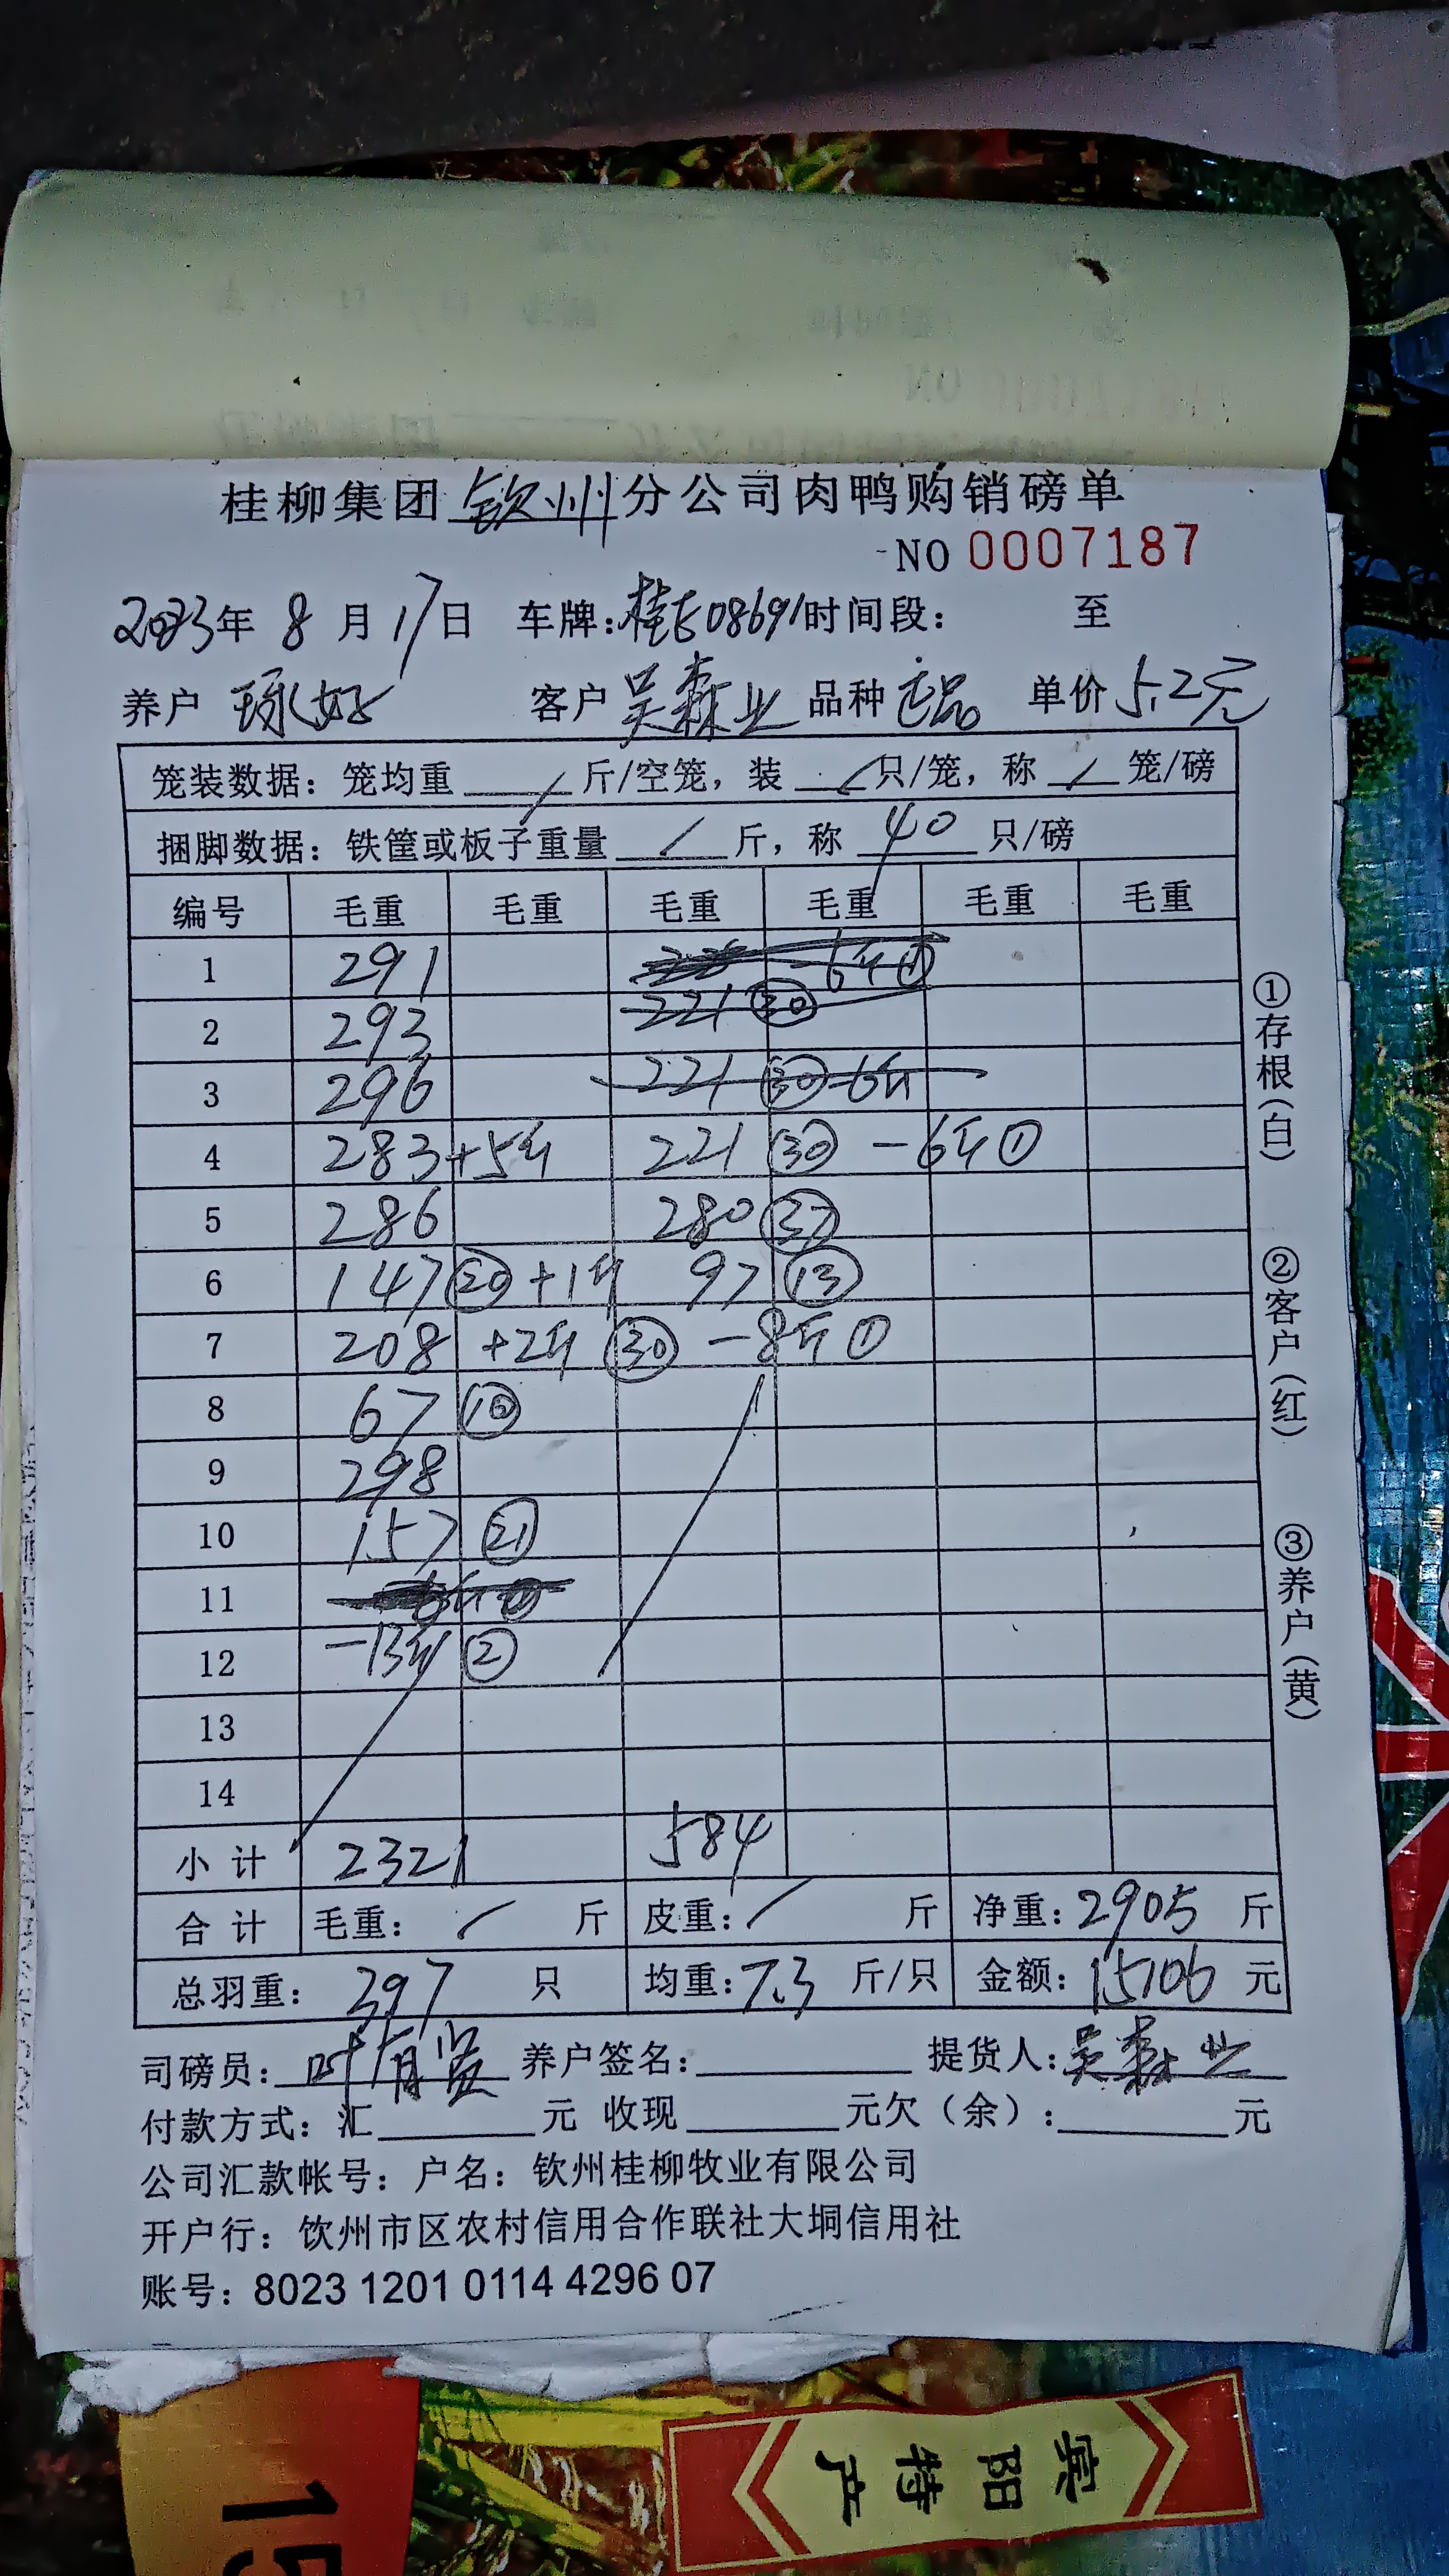 桂柳集团钦州分公司肉鸭购销磅单
NO 0007187
2023年 8 月 17日 车牌:桂E08691时间段: 至
养户 琼好 客户 吴森业 品种 正品 单价 5.2元
笼装数据: 笼均重 / 斤/空笼, 装 / 只/笼, 称 / 笼/磅
捆脚数据: 铁筐或板子重量 / 斤, 称 40 只/磅
编号 毛重 毛重 毛重 毛重 毛重 毛重
1 291 -6斤①
2 293 221 ㉚
3 296 221 ㉚ -6斤
4 283+5斤 221 ㉚ -6斤①
5 286 280 ㊲
6 147⑳+1斤 97 ⑬
7 208 +2斤 ㉚ -8斤①
8 67 ⑩
9 298
10 157 ㉑
11
12 -13斤 ②
13
14
小计 2321 584
合计 毛重: / 斤 皮重: / 斤 净重: 2905 斤
总羽重: 397 只 均重: 7.3 斤/只 金额: 15106 元
司磅员: 叶有贤 养户签名: 提货人: 吴森业
付款方式: 汇 元 收现 元欠(余): 元
公司汇款帐号: 户名: 钦州桂柳牧业有限公司
开户行: 钦州市区农村信用合作联社大垌信用社
账号: 8023 1201 0114 4296 07
①存根(白)
②客户(红)
③养户(黄)
宾阳特产
15